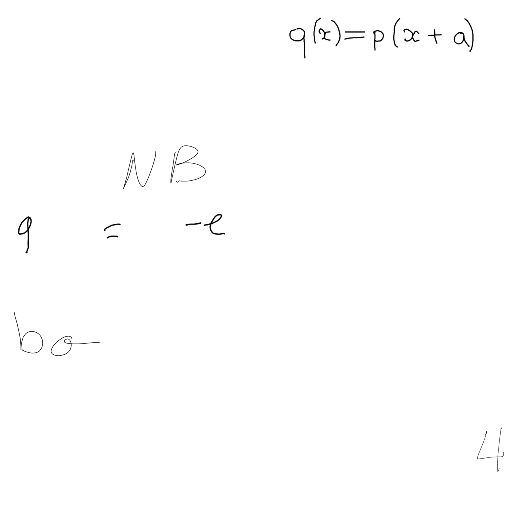 q(x)=p(x+a)
NB
q = -e
bσ
4